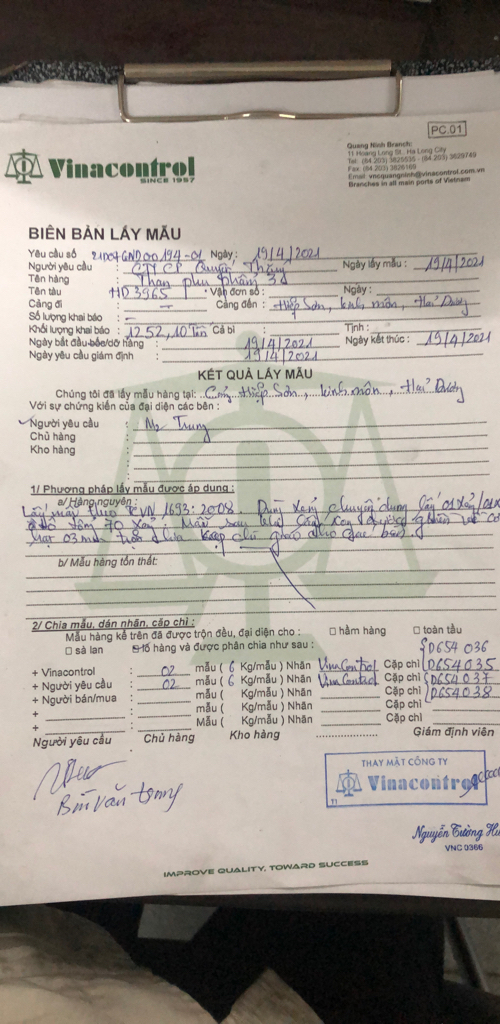 PC.01
Vinacontrol
SINCE 1957
Quang Ninh Branch:
11 Hoang Long St., Ha Long City
Tel: (84.203) 3825535 - (84.203) 3829749
Fax: (84.203) 3826169
Email: vncquangninh@vinacontrol.com.vn
Branches in all main ports of Vietnam
BIÊN BẢN LẤY MẪU
Yêu cầu số 21D04GND00194-01 Ngày: 19/4/2021
Người yêu cầu : CTY CP Quyết Thắng Ngày lấy mẫu : 19/4/2021
Tên hàng : Than phụ phẩm 3d
Tên tàu : HD 3965 Vận đơn số: Ngày :
Cảng đi : - Cảng đến : Hiệp Sơn, Kinh Môn, Hải Dương
Số lượng khai báo : -
Khối lượng khai báo : 1252,10 Tấn Cả bì : Tịnh :
Ngày bắt đầu bốc/dỡ hàng : 19/4/2021 Ngày kết thúc : 19/4/2021
Ngày yêu cầu giám định : 19/4/2021
KẾT QUẢ LẤY MẪU
Chúng tôi đã lấy mẫu hàng tại: Cảng Hiệp Sơn, Kinh Môn, Hải Dương
Với sự chứng kiến của đại diện các bên :
Người yêu cầu : Mr Trung
Chủ hàng :
Kho hàng :
1/ Phương pháp lấy mẫu được áp dụng :
a/ Hàng nguyên :
Lấy mẫu theo TCVN 1693: 2008. Dùng xẻng chuyên dụng lấy 01 xẻng/01
70 Mẫu sau khi lấy xong được nghiền về cỡ
hạt 03 mm trộn chia kẹp chì giao cho các bên.
b/ Mẫu hàng tổn thất:
2/ Chia mẫu, dán nhãn, cấp chì :
Mẫu hàng kể trên đã được trộn đều, đại diện cho : □ hầm hàng □ toàn tàu
□ sà lan lô hàng và được phân chia như sau : D654 036
+ Vinacontrol : 02 mẫu ( 6 Kg/mẫu ) Nhãn Vinacontrol Cặp chì D654035
+ Người yêu cầu : 02 mẫu ( 6 Kg/mẫu ) Nhãn Vinacontrol Cặp chì D654 037
+ Người bán/mua : mẫu ( Kg/mẫu ) Nhãn Cặp chì D654038
+ : mẫu ( Kg/mẫu ) Nhãn Cặp chì
+ : Mẫu ( Kg/mẫu ) Nhãn Cặp chì
Người yêu cầu Chủ hàng Kho hàng Giám định viên
THAY MẶT CÔNG TY
Vinacontrol
T1
Bùi Văn Trung
Nguyễn Tường
VNC 0366
IMPROVE QUALITY, TOWARD SUCCESS